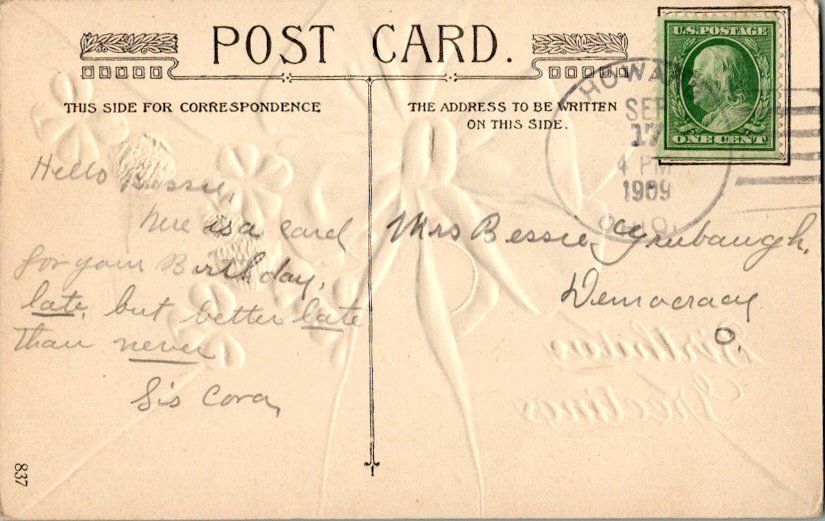 POST CARD.
THIS SIDE FOR CORRESPONDENCE
THE ADDRESS TO BE WRITTEN
ON THIS SIDE.
U.S. POSTAGE
ONE CENT
HOWARD
SEP
17
4 PM
1909
OHIO.
Hello Bessie,
here is a card
for your Birthday,
late, but better late
than never
Sis Cora,
Mrs Bessie Grubaugh,
Democracy
O.
Birthday
Greetings
837